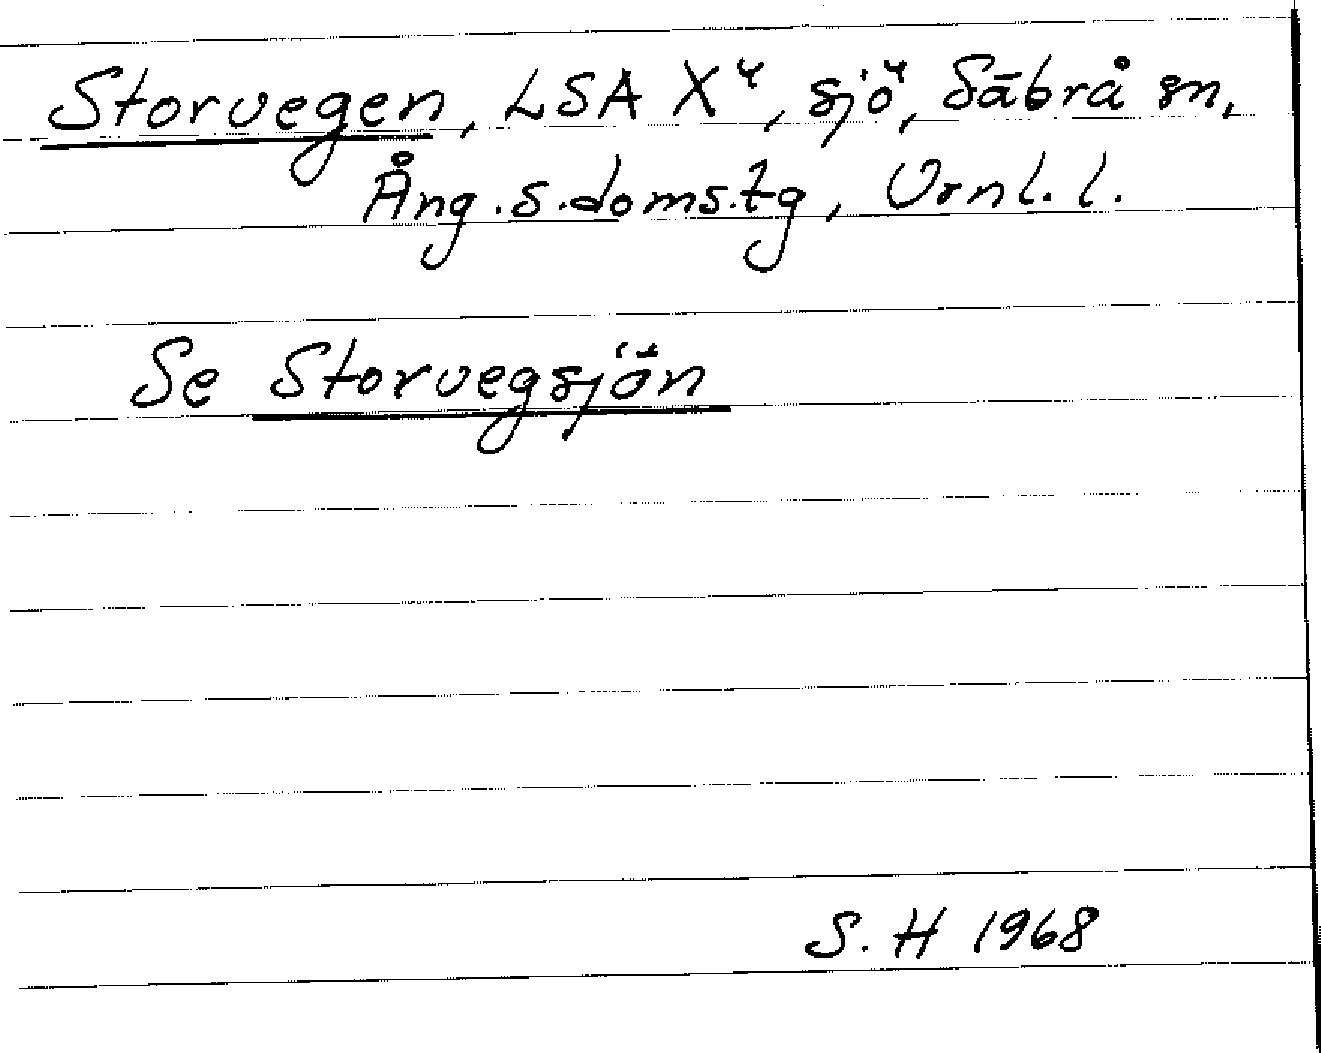 Storvegen, LSA X⁴, sjö, Säbrå sn,
Ång.s.doms.tg, Vrnl.l.
Se Storvegsjön
S. H 1968